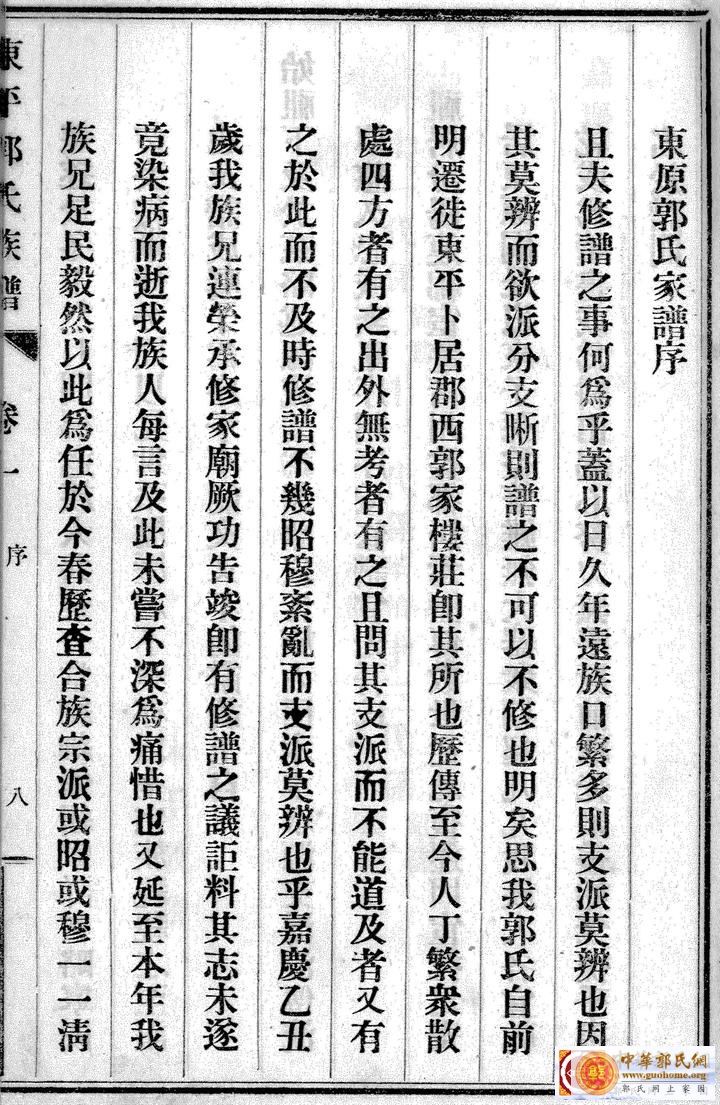 東原郭氏家譜序
且夫修譜之事何為乎蓋以日久年遠族口繁多則支派莫辨也因
其莫辨而欲派分支晰則譜之不可以不修也明矣思我郭氏自前
明遷徙東平卜居郡西郭家樓莊卽其所也歷傳至今人丁繁衆散
處四方者有之出外無考者有之且問其支派而不能道及者又有
之於此而不及時修譜不幾昭穆紊亂而支派莫辨也乎嘉慶乙丑
歲我族兄連榮承修家廟厥功告竣卽有修譜之議詎料其志未遂
竟染病而逝我族人每言及此未嘗不深為痛惜也又延至本年我
族兄足民毅然以此為任於今春歷查合族宗派或昭或穆一一淸
東平郭氏族譜 卷一 序 八
中華郭氏網
www.guohome.org
郭氏网上家园